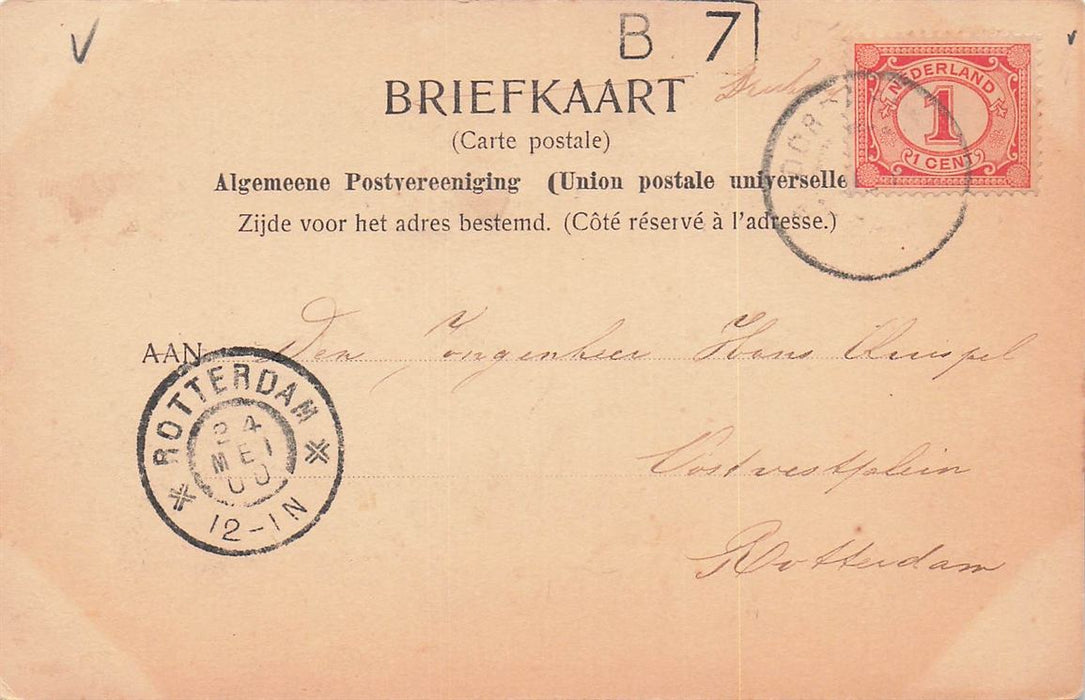 V
B 7
BRIEFKAART
(Carte postale)
Algemeene Postvereeniging (Union postale universelle
Zijde voor het adres bestemd. (Côté réservé à l'adresse.)
NEDERLAND
1
1 CENT
AAN
Den Jongenheer Hans
Oostvestplein
Rotterdam
ROTTERDAM
24
MEI
00
12-1N